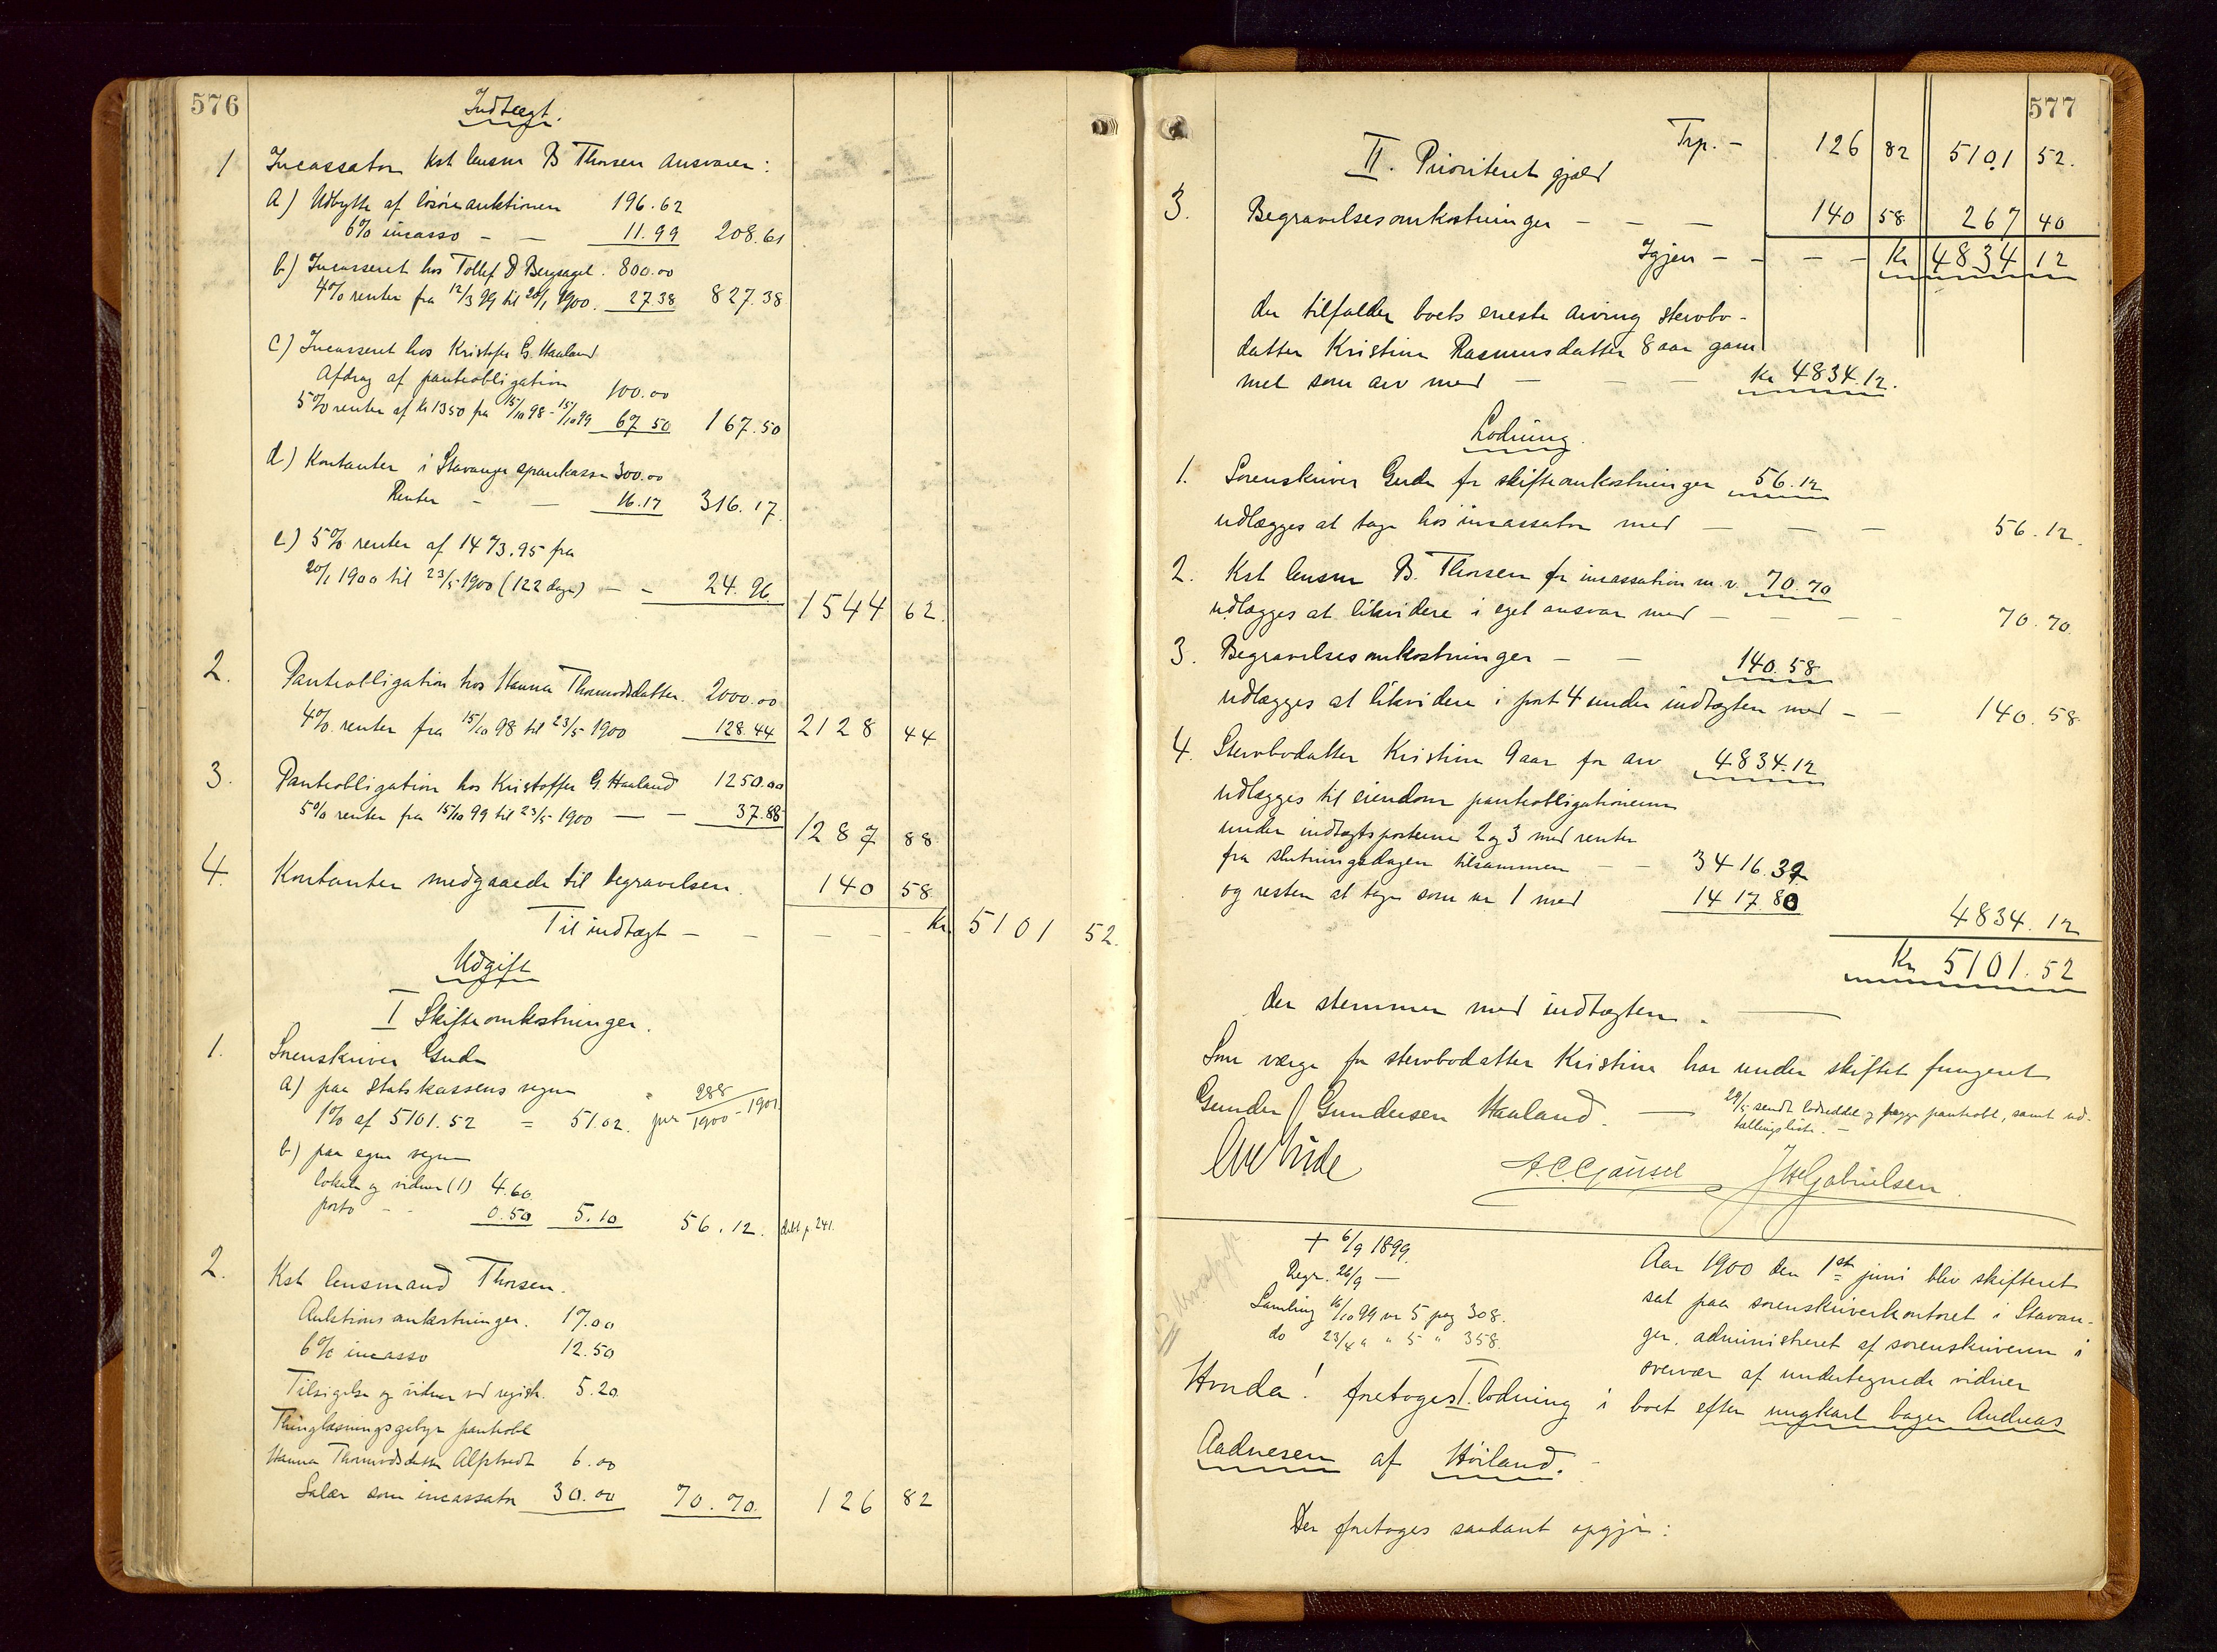 576
Indtægt.
1 Incassator Kst lensm B Thorsen ansvarer:
a) Udbytte af løsøreauktionen 196.62
6% incasso - - 11.99 208.61
b) Incasseret hos Tollef D Bersagel. 800.00
4% renter fra 12/3 99 til 20/1 1900. 27.38 827.38
c) Incasseret hos Kristofer G. Haaland
Afdrag af panteobligation 100.00
5% renter af kr 1350 fra 15/10 98 - 15/10 99 67 50 167.50
d) Kontanter i Stavanger sparekasse 300.00
Renter - - 16.17 316.17.
e) 5% renter af 1473.95 fra
20/1 1900 til 23/5 1900 (122 dage) - - 24.96. 1544 62.
2. Panteobligation hos Hanna Thormodsdatter. 2000.00
4% renter fra 15/10 98 til 23/5 1900 128.44 2128 44
3. Panteobligation hos Kristoffer G. Haaland 1250.00
5% renter fra 15/10 99 til 23/5 1900 - - 37.88 1287 88
4. Kontanter medgaaede til begravelsen. 140 58.
Til indtægt - - - - - Kr. 5101 52.
Udgift
I Skifteomkostninger.
1. Sorenskriver Gude
a) paa statskassens vegne
1% af 5101.52 = 51.02. jnr 288/1900-1901.
b) paa egne vegne
lokale og vidner (1) 4.60
porto - - 0.50 5.10 56.12. p 241.
2. Kst lensmand Thorsen.
Auktionsomkostninger. 17.00
6% incasso 12.50
Tilsigelse og vidner ved registr. 5.20.
Thinglæsningsgebyr panteobl
Hanna Thormodsdatter 6.00
Salær som incassator 30.00 70.70. 126 82
577
Trp. - 126 82 5101 52.
II. Prioriteret gjæld
3. Begravelsesomkostninger - - - 140 58 267 40
Igjen - - - - Kr 4834 12
der tilfalder boets eneste arving stervbo-
datter Kristine Rasmusdatter 8 aar gam
mel som arv med - - - Kr 4834.12.
Lodning.
1. Sorenskriver Gude for skifteomkostninger 56.12
udlægges at tage hos incassator med - - - 56.12.
2. Kst lensm B. Thorsen for incassation m.v. 70.70
udlægges at likvidere i eget ansvar med - - - - 70.70.
3. Begravelsesomkostninger - - 140.58
udlægges at likvidere i post 4 under indtægten med - - 140.58
4. Stervbodatter Kristine 9 aar for arv 4834.12
udlægges til eiendom panteobligationerne
under indtægtsposterne 2 og 3 med renter
fra slutningsdagen tilsammen - - 3416.32
og resten at tage som nr 1 med 1417.80
4834.12
Kr 5101.52
der stemmer med indtægten. -
Som værge for stervbodatter Kristine har under skiftet fungeret
Gunder Gundersen Haaland. - 29/5 sendt lodseddel og begge panteobl, samt ud-
tællingsliste. -
Gude A. C. Gausel J W Gabrielsen.
+ 6/9 1899.
Begr. 26/9 -
Samling 16/10 99 nr 5 pag 308.
do 23/4 " " 5 " 358.
Aar 1900 den 1ste juni blev skifteret
sat paa sorenskriverkontoret i Stavan-
ger, administreret af sorenskriveren i
overvær af undertegnede vidner
Hvorda! foretoges I. lodning i boet efter ungkarl bager Andreas
Aadnesen af Høiland. -
Der foretoges saadant opgjør: